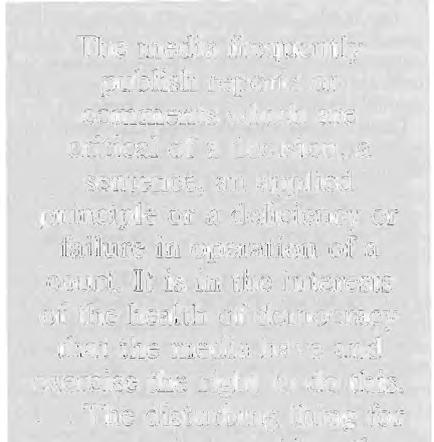 The media frequently
publish reports or
comments which are
critical of a decision, a
sentence, an applied
principle or a deficiency or
failure in operation of a
court. It is in the interests
of the health of democracy
that the media have and
exercise the right to do this.
The disturbing thing for